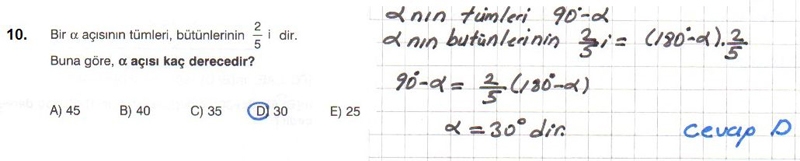 10. Bir α açısının tümleri, bütünlerinin 2/5 i dir.
Buna göre, α açısı kaç derecedir?
A) 45 B) 40 C) 35 D) 30 E) 25
α nın tümleri 90°-α
α nın butünlerinin 2/5 i = (180°-α).2/5
90°-α = 2/5 (180°-α)
α = 30° dir.
cevap D